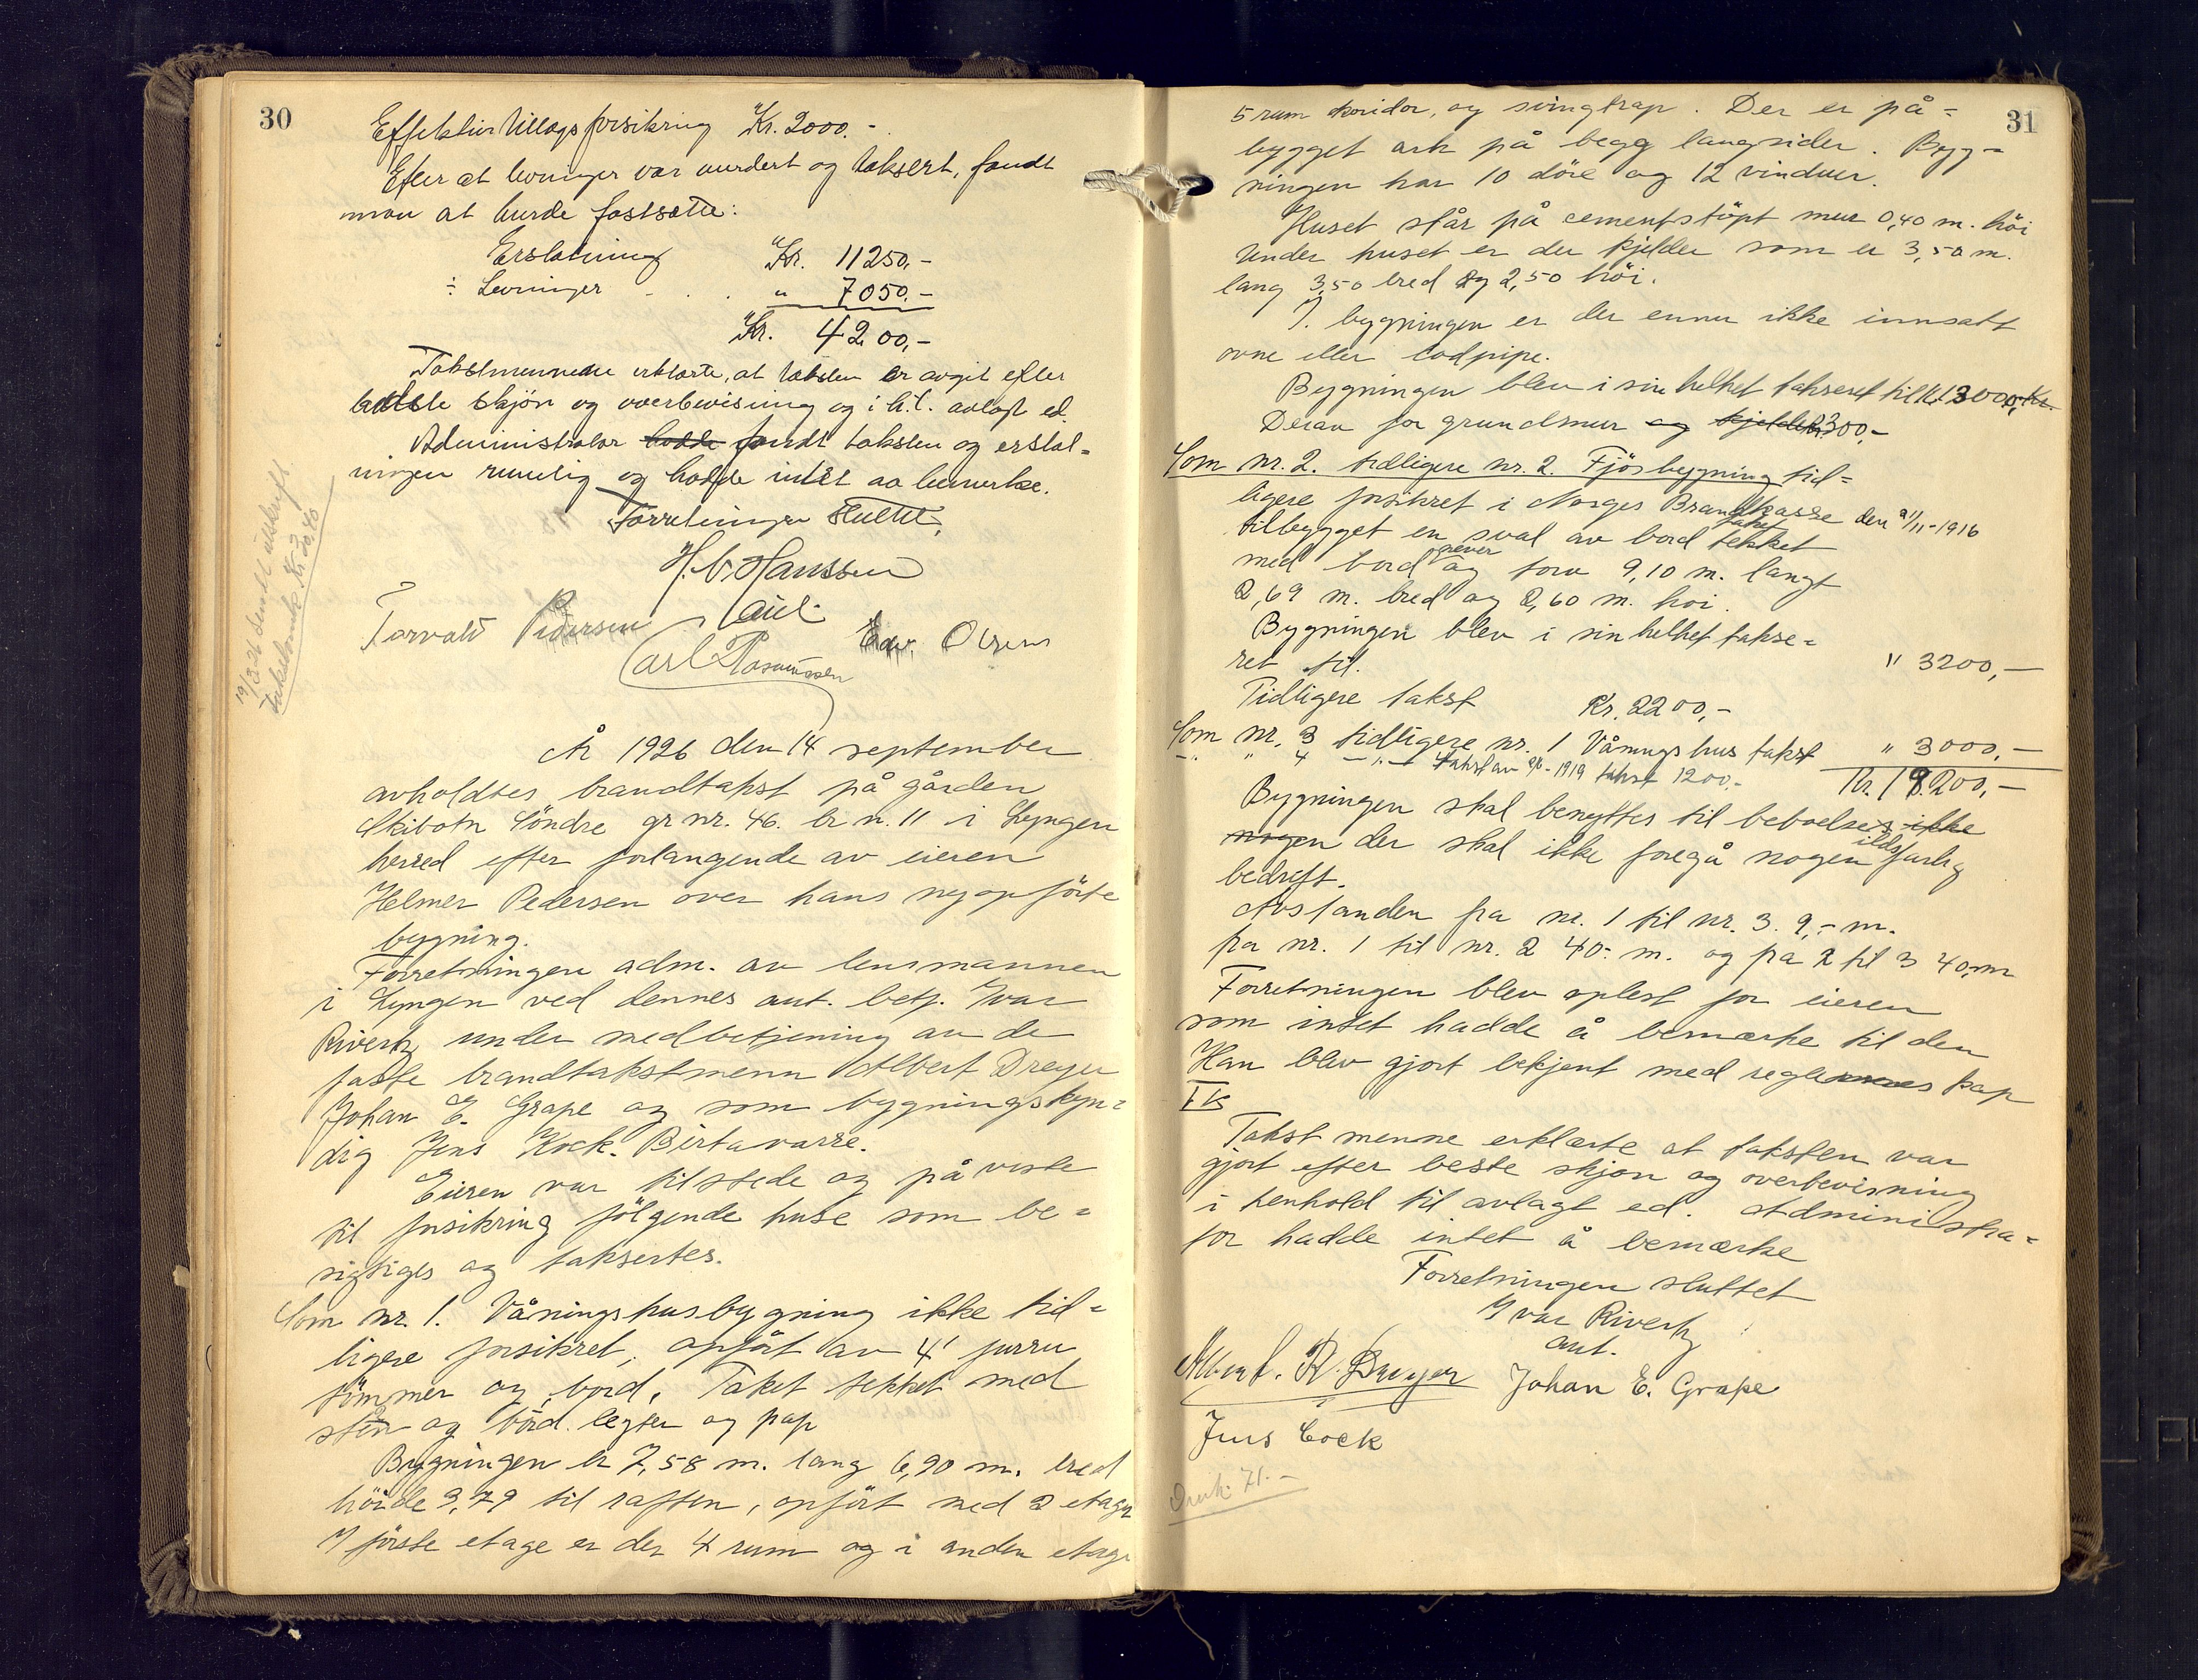 30
Effektiv tillegsforsikring Kr. 2000.-
Efter at levninger var vurdert og taksert, fandt
man at burde fastsætte:
Erstatning Kr. 11250,-
÷ Levninger - . . " 7050.-
Kr. 4200,-
Takstmennene erklærte, at taksten er avgit efter
bedste skjön og overbevisning og i h.t. avlagt ed.
Administrator hadde fandt taksten og erstat=
ningen rimelig og hadde intet aa bemerke.
Forretningen sluttet.
H. C. Hanssen
aut.
Torvald Pedersen Edv. Olsen
Carl Rasmussen
19/3 26 sendt utskrift
Takstbeløp Kr 30.40
År 1926 den 14 september
avholdtes brandtakst på gården
Skibotn Söndre gr nr. 46. br n. 11 i Lyngen
herred efter forlangende av eieren
Helmer Pedersen over hans nyopförte
bygning.
Forretningen adm. av lensmannen
i Lyngen ved dennes aut. betj. Ivar
Rivertz under medbetjening av de
faste brandtakstmenn Albert Dreyer
Johan E. Grape og som bygningskyn=
dig Jens Kock. Birtavarre.
Eieren var tilstede og påviste
til forsikring fölgende huse som be=
sigtiges og taksertes.
Som nr. 1. Våningshusbygning ikke tid=
ligere forsikret, opfört av 4" furru
tömmer og bord. Taket tekket med
sten og bord. legter og pap
Bygningen er 7,58 m. lang 6,90 m. bred
höide 3,79 til raften, opfört med 2 etager
I förste etage er der 4 rum og i anden etage
31
5 rum koridor, og svingtrap. Der er på=
bygget ark på begg langsider. Byg=
ningen har 10 döre og 12 vinduer.
Huset står på cementstöpt mur 0,40 m. höi
Under huset er der kjelder som er 3,50 m.
lang 3,50 bred og 2,50 höi.
I. bygningen er der ennu ikke innsatt
ovne eller lodpipe.
Bygningen blev i sin helhet takseret til Kr. 13000,- Kr.
Derav for grundmur og kjelder 300,-
Som nr. 2. tidligere nr. 2. Fjösbygning tid=
ligere forsikret i Norges Brandkasse den 21/11-1916
tilbygget en sval av bord taket tekket
med bord never og torv 9,10 m. langt
2,69 m. bred og 2,60 m. hoi.
Bygningen blev i sin helhet takse=
ret til. " 3200,-
Tidligere takst Kr. 2200,-
Som nr. 3 tidligere nr. 1 Våningshus takst " 3000,-
-"- " 4 -"- takst av 2/6-1919 takst 1200.- Kr. 19.200,-
Bygningen skal benyttes til beboelses ikke
nogen der skal ikke foregå nogen ildsfarlig
bedrift.
Avstanden fra nr. 1 til nr. 3. 9,- m.
fra nr. 1 til nr. 2 40.- m. og fra 2 til 3 40,m
Forretningen blev oplest for eieren
som intet hadde å bemærke til den
Han blev gjort bekjent med reglernes kap
IV
Takstmenne erklærte at taksten var
gjort efter beste skjon og overbevisning
i henhold til avlagt ed. Administra=
tor hadde intet å bemærke
Forretningen sluttet
Ivar Rivertz
aut.
Albert. R. Dreyer Johan E. Grape
Jens Cock
71.-